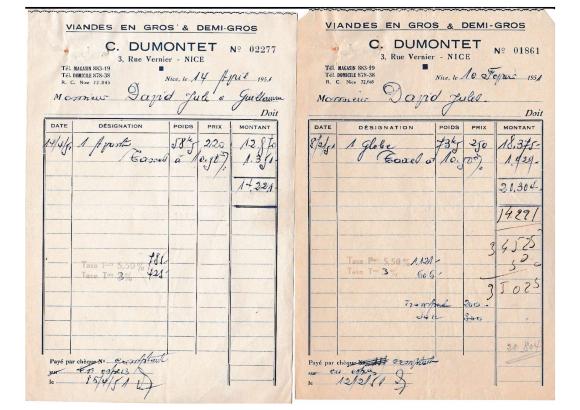 VIANDES EN GROS & DEMI-GROS
C. DUMONTET
Nº 02277
3, Rue Vernier - NICE
Tél. MAGASIN 883-19
Tél. DOMICILE 878-38
R. C. Nice 72.045
Nice, le 14 April 1951
Monsieur David Jules à Guillaumes
Doit
DATE DÉSIGNATION POIDS PRIX MONTANT
14/4/51 1 58k5 220 12.870
Taxes à 10.50% 1.351
14.221
781
Taxe 5,50 %
Taxe 3% 421
Payé par chèque Nº comptant
en espèces
le 15/4/51
VIANDES EN GROS & DEMI-GROS
C. DUMONTET
Nº 01861
3, Rue Vernier - NICE
Tél. MAGASIN 883-19
Tél. DOMICILE 878-38
R. C. Nice 72,045
Nice, le 10 1951
Monsieur David Jules.
Doit
DATE DÉSIGNATION POIDS PRIX MONTANT
8/2/51 1 Globe 73k5 250 18.375
Taxes à 10.50% 1.929
20.304
14221
34525
500
35025
Taxe 5,50 % 1.121
Taxe 3 % 606
Transport 200
300
20.804
Payé par chèque comptant
en espèces
le 12/2/51